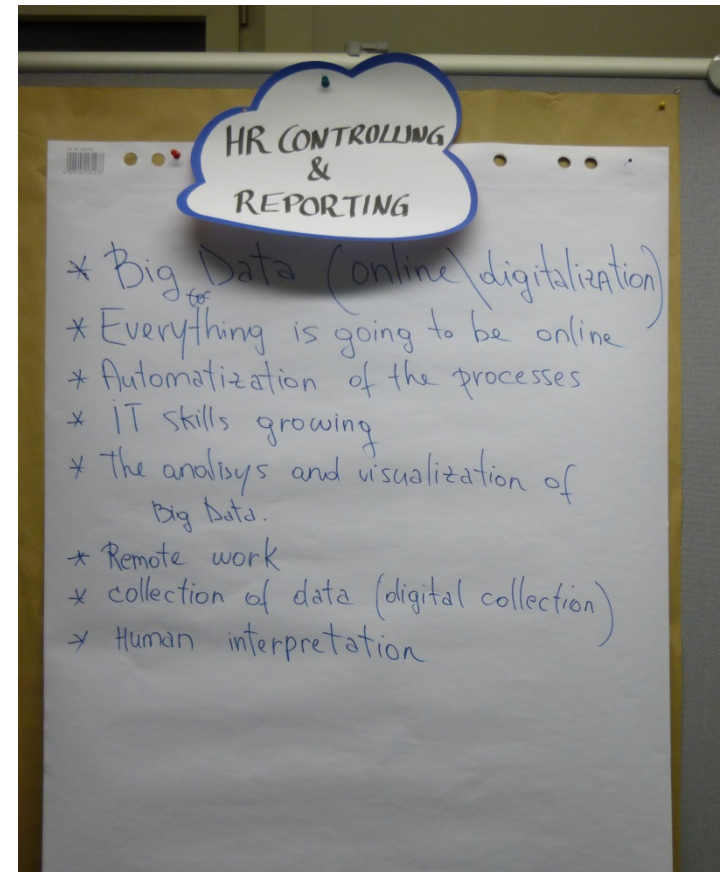 HR CONTROLLING
&
REPORTING
* Big Data (online\digitalization)
* Everything is going to be online
* Automatization of the processes
* IT skills growing
* The analisys and visualization of
Big Data.
* Remote work
* collection of data (digital collection)
* Human interpretation